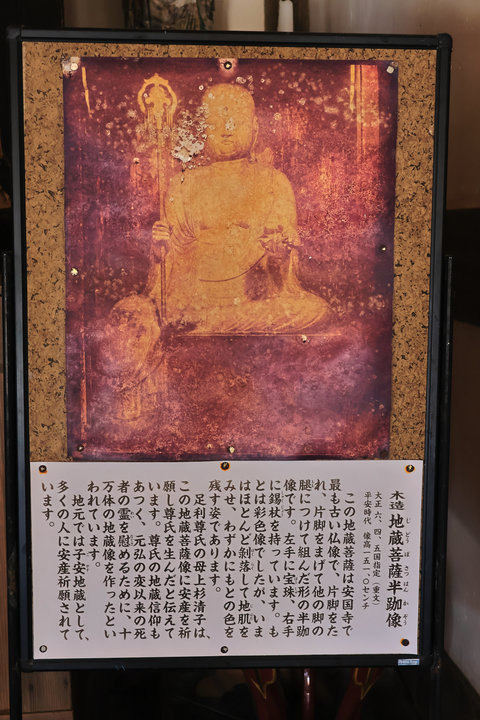 木造 地蔵菩薩半跏像
じ ぞう ぼ さつ はん か ぞう
大正 六、四、五国指定（重文）
平安時代　像高 一五一、〇センチ
この地蔵菩薩は安国寺で
最も古い仏像で、片脚をた
れ、片脚をまげて他の脚の
腿につけて組んだ形の半跏
像です。左手に宝珠、右手
に錫杖を持っています。も
とは彩色像でしたが、いま
はほとんど剝落して地肌を
みせ、わずかにもとの色を
残す姿であります。
足利尊氏の母上杉清子は、
この地蔵菩薩像に安産を祈
願し尊氏を生んだと伝えて
います。尊氏の地蔵信仰も
あつく、元弘の変以来の死
者の霊を慰めるために、十
万体の地蔵像を作ったとい
われています。
地元では子安地蔵として、
多くの人に安産祈願されて
います。